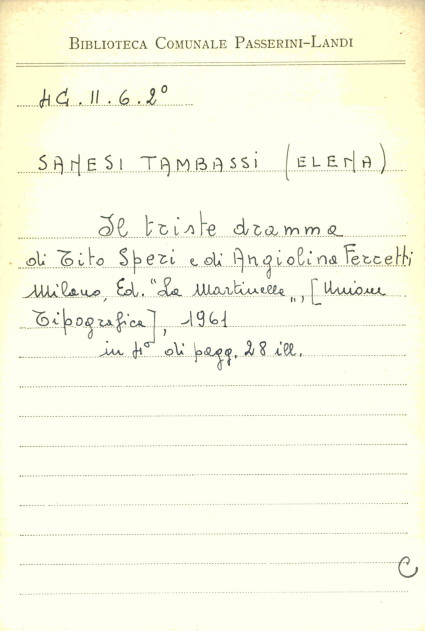 BIBLIOTECA COMUNALE PASSERINI-LANDI
4G.II.6.2°
SANESI TAMBASSI (ELENA)
Il triste dramma
di Tito Speri e di Angiolina Fercetti
Milano, Ed. "La Martinella", [Unione
Tipografica], 1961
in 4° di pagg. 28 ill.
C